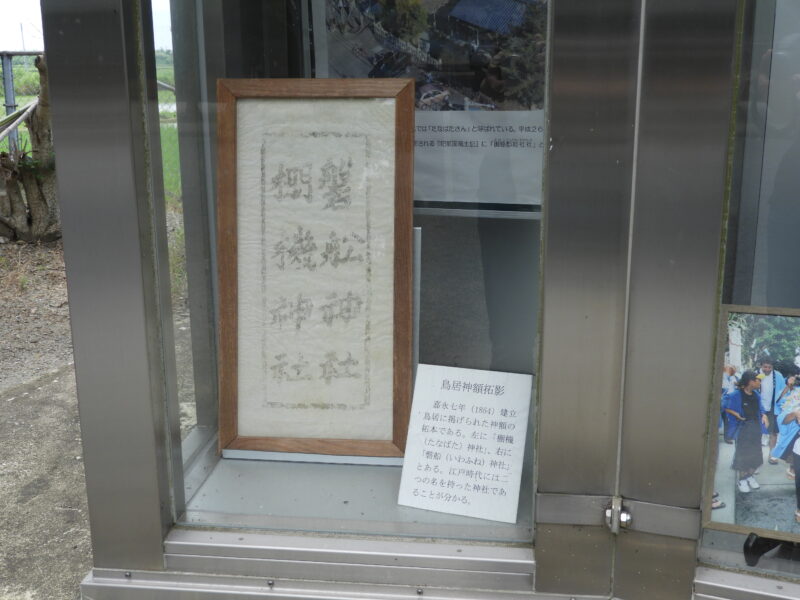 磐舩神社
棚機神社
は「たなばたさん」と呼ばれている。平成２６
される『肥前国風土記』に「
鳥居神額拓影
嘉永七年（1854）建立
鳥居に掲げられた神額の
拓本である。左に「棚機
（たなばた）神社」、右に
「磐船（いわふね）神社」
とある。江戸時代には二
つの名を持った神社であ
ることが分かる。